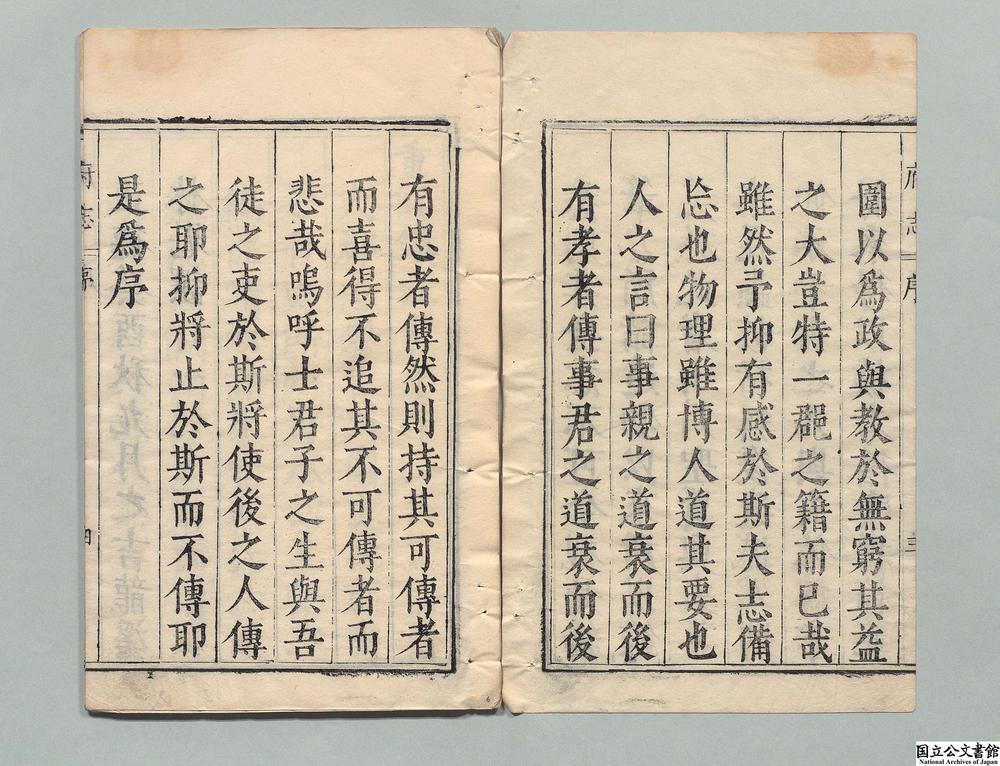 府志 序 三
圍以為政與教於無窮其益
之大豈特一郡之籍而已哉
雖然予抑有感於斯夫志備
忘也物理雖博人道其要也
人之言曰事親之道衰而後
有孝者傳事君之道衰而後
有忠者傳然則持其可傳者
而喜得不追其不可傳者而
悲哉嗚呼士君子之生與吾
徒之吏於斯將使後之人傳
之耶抑將止於斯而不傳耶
是為序
府志 序 四
国立公文書館
National Archives of Japan